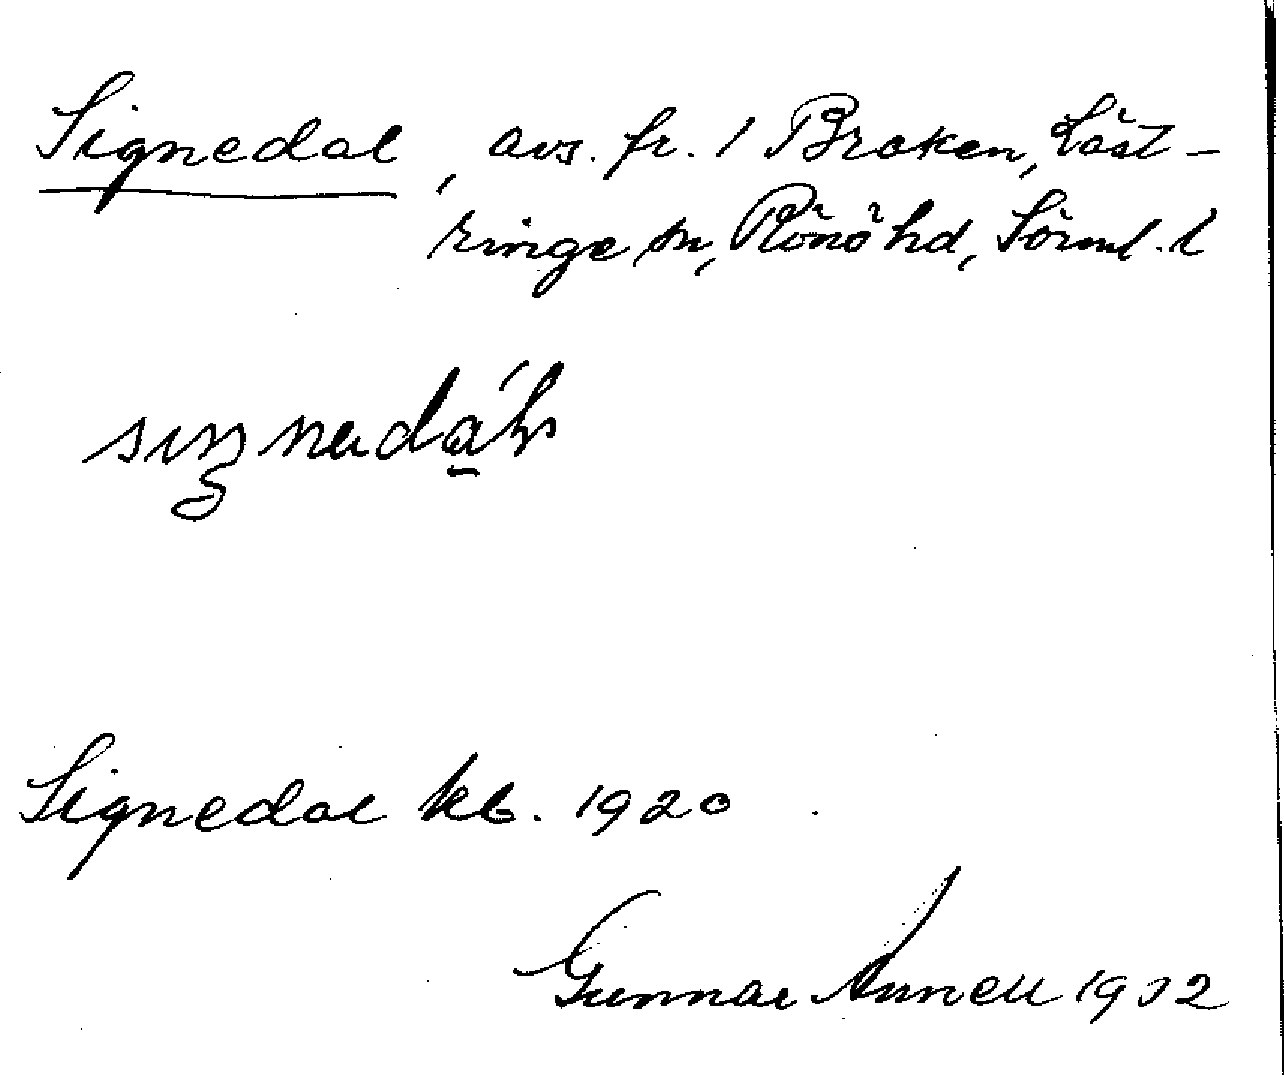 Signedal, avs. fr. 1 Broken, Läst-
ringe sn, Rönö hd, Sörml. l
Signedal kb. 1920
Gunnar Annell 1932